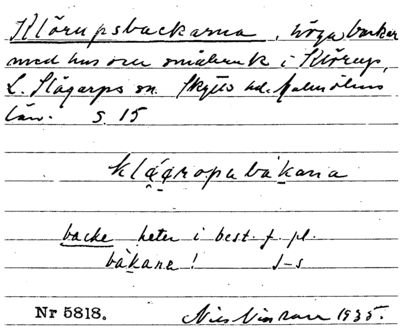 Klörupsbackarna, höga backar
med hus och småbruk i Klörup,
L. Slågarps sn. Skytts hd. Malmöhus
län. S. 15
klǡropabakana
backe heter i best. f. pl.
bákane! J-s
Nr 5818. Nils 1935.